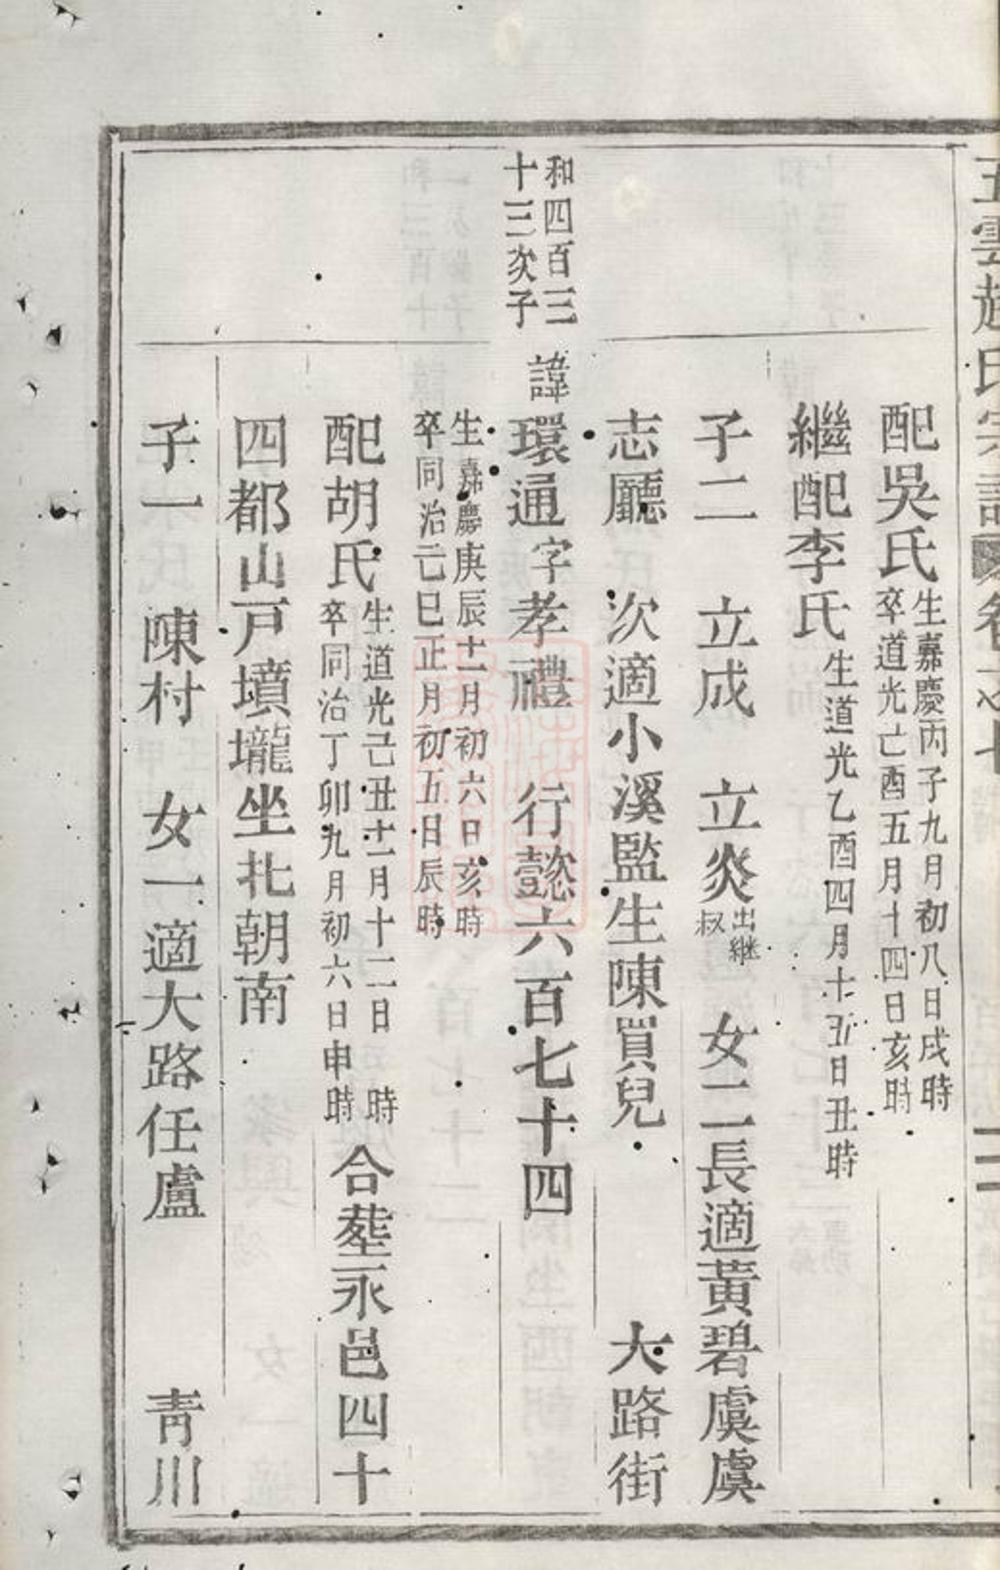 五雲趙氏宗譜 卷之七
配吳氏生嘉慶丙子九月初八日戌時
卒道光己酉五月十四日亥時
繼配李氏生道光乙酉四月十五日丑時
子二 立成 立炎出繼叔 女二長適黃碧虞虞
志廳 次適小溪監生陳買兒 大路街
和四百三
十三次子
諱環通字孝禮 行懿六百七十四
生嘉慶庚辰十二月初六日亥時
卒同治己巳正月初五日辰時
配胡氏生道光己丑十二月十二日 時
卒同治丁卯九月初六日申時
合塟永邑四十
四都山戸墳壠坐北朝南
子一 陳村 女一適大路任盧 青川